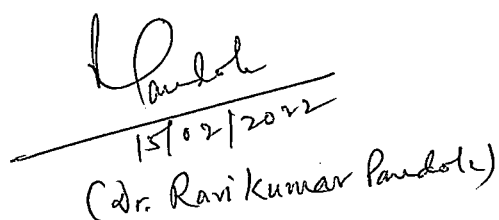 15/02/2022
(Dr. Ravi Kumar Pandole)